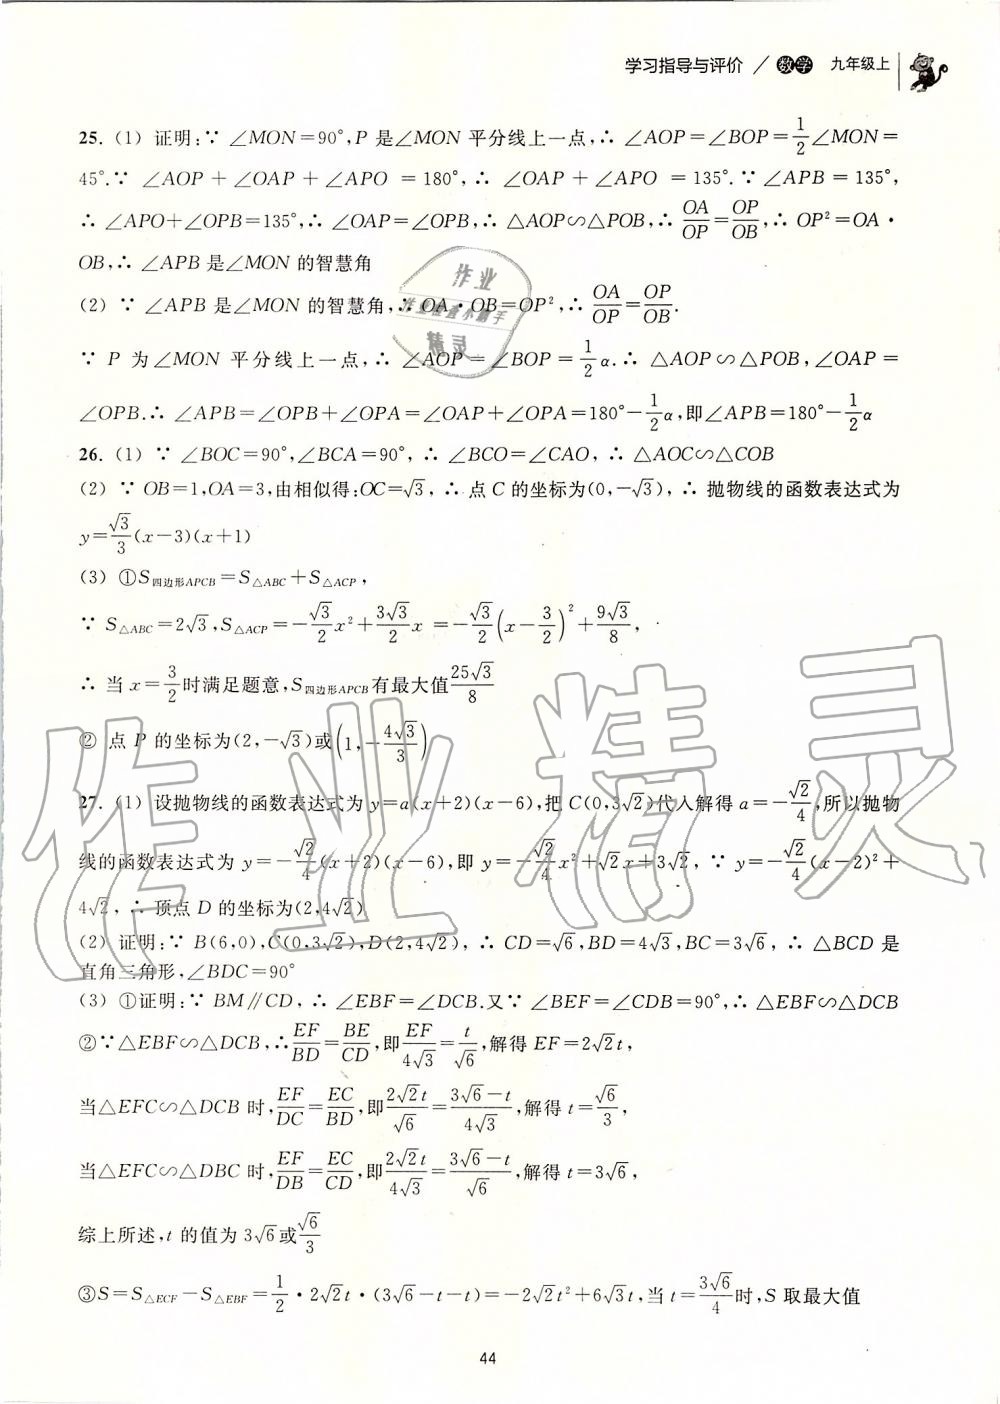 学习指导与评价 / 数学 九年级上
25. (1) 证明:∵ ∠MON=90°,P 是∠MON 平分线上一点,∴ ∠AOP=∠BOP=1/2∠MON=
45°.∵ ∠AOP+∠OAP+∠APO =180°,∴ ∠OAP+∠APO =135°.∵ ∠APB=135°,
∴ ∠APO+∠OPB=135°,∴ ∠OAP=∠OPB,∴ △AOP∽△POB,∴ OA/OP=OP/OB,∴ OP²=OA·
OB,∴ ∠APB 是∠MON 的智慧角
(2) ∵ ∠APB 是∠MON 的智慧角,∴ OA·OB=OP²,∴ OA/OP=OP/OB.
∵ P 为∠MON 平分线上一点,∴ ∠AOP=∠BOP=1/2α.∴ △AOP∽△POB,∠OAP=
∠OPB.∴ ∠APB=∠OPB+∠OPA=∠OAP+∠OPA=180°-1/2α,即∠APB=180°-1/2α
26. (1) ∵ ∠BOC=90°,∠BCA=90°, ∴ ∠BCO=∠CAO, ∴ △AOC∽△COB
(2) ∵ OB=1,OA=3,由相似得:OC=√3, ∴ 点 C 的坐标为(0,-√3), ∴ 抛物线的函数表达式为
y=√3/3(x-3)(x+1)
(3) ①S四边形APCB=S△ABC+S△ACP,
∵ S△ABC=2√3,S△ACP=-√3/2x²+3√3/2x =-√3/2(x-3/2)²+9√3/8,
∴ 当 x=3/2时满足题意,S四边形APCB有最大值25√3/8
② 点 P 的坐标为(2,-√3)或(1,-4√3/3)
27. (1) 设抛物线的函数表达式为 y=a(x+2)(x-6),把 C(0,3√2)代入解得 a=-√2/4,所以抛物
线的函数表达式为 y=-√2/4(x+2)(x-6),即 y=-√2/4x²+√2x+3√2, ∵ y=-√2/4(x-2)²+
4√2, ∴ 顶点 D 的坐标为(2,4√2)
(2) 证明:∵ B(6,0),C(0,3√2),D(2,4√2), ∴ CD=√6,BD=4√3,BC=3√6, ∴ △BCD 是
直角三角形,∠BDC=90°
(3) ①证明:∵ BM∥CD, ∴ ∠EBF=∠DCB.又∵ ∠BEF=∠CDB=90°,∴ △EBF∽△DCB
②∵△EBF∽△DCB,∴EF/BD=BE/CD,即EF/4√3=t/√6,解得 EF=2√2t,
当△EFC∽△DCB 时,EF/DC=EC/BD,即2√2t/√6=3√6-t/4√3,解得 t=√6/3,
当△EFC∽△DBC 时,EF/DB=EC/CD,即2√2t/4√3=3√6-t/√6,解得 t=3√6,
综上所述,t 的值为 3√6或√6/3
③S=S△ECF-S△EBF=1/2·2√2t·(3√6-t-t)=-2√2t²+6√3t,当 t=3√6/4时,S 取最大值
44
作业精灵
作业
作业检查小帮手
精灵